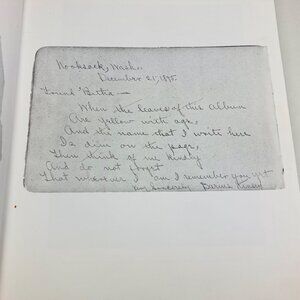 Nooksack, Wash.
December 21, 1895.
Friend Bertha—
When the leaves of this album
Are yellow with age,
And the name that I write here
Is dim on the page,
Then think of me kindly
And do not forget
That wherever I am I remember you yet
Darius Kinsey